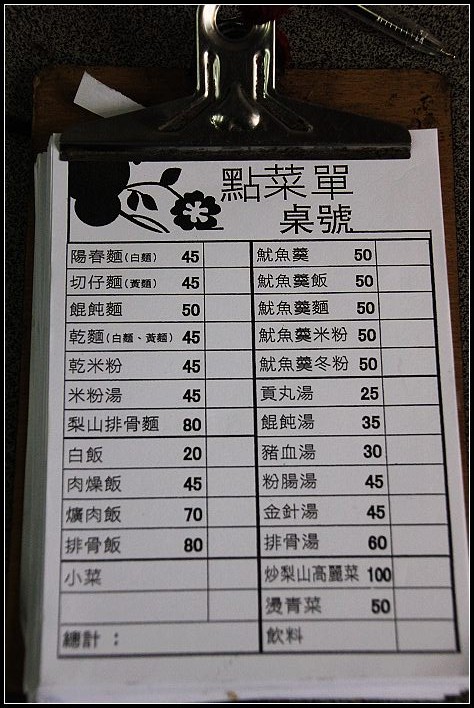 點菜單
桌號
陽春麵(白麵) 45
切仔麵(黃麵) 45
餛飩麵 50
乾麵(白麵、黃麵) 45
乾米粉 45
米粉湯 45
梨山排骨麵 80
白飯 20
肉燥飯 45
爌肉飯 70
排骨飯 80
小菜
總計：
魷魚羹 50
魷魚羹飯 50
魷魚羹麵 50
魷魚羹米粉 50
魷魚羹冬粉 50
貢丸湯 25
餛飩湯 35
豬血湯 30
粉腸湯 45
金針湯 45
排骨湯 60
炒梨山高麗菜 100
燙青菜 50
飲料